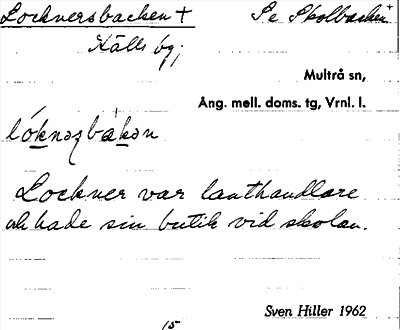 Locknersbacken + Se Skolbacken+
Källs by;
Multrå sn,
Ång. mell. doms. tg, Vrnl. l.
lóknəʒbàkən
Lockner var lanthandlare
och hade sin butik vid skolan.
Sven Hiller 1962
15